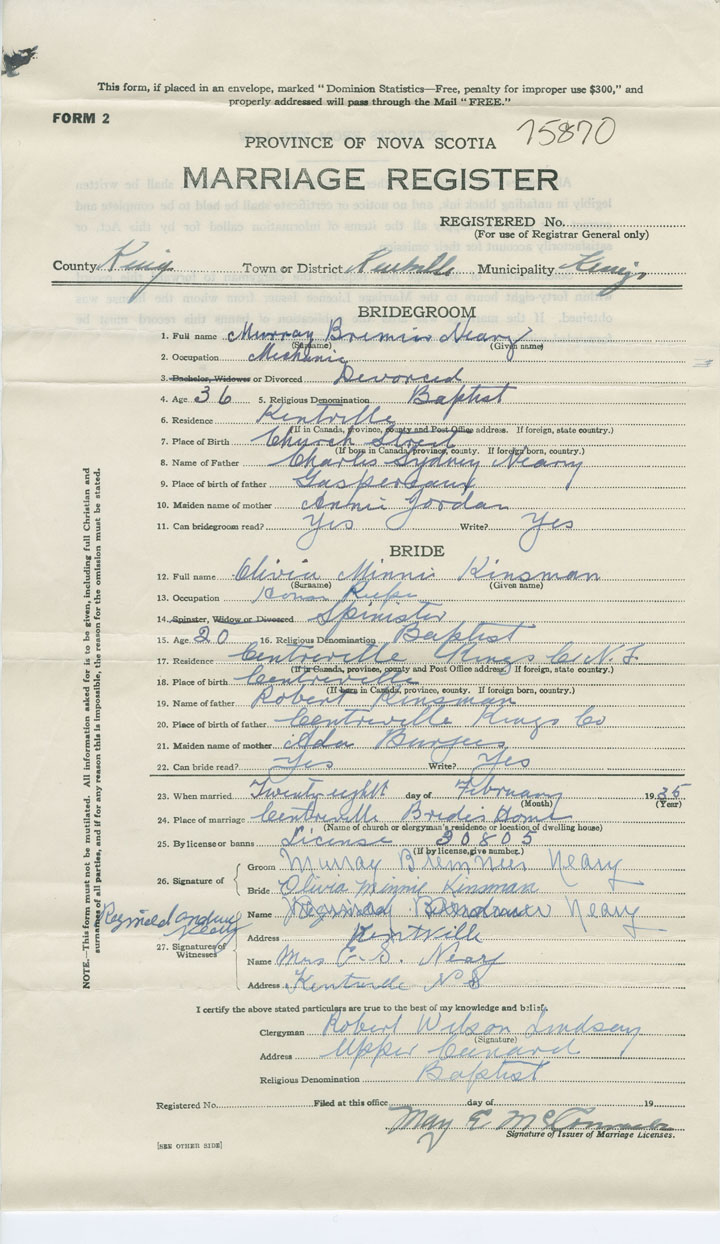 This form, if placed in an envelope, marked "Dominion Statistics—Free, penalty for improper use $300," and
properly addressed will pass through the Mail "FREE."
FORM 2
PROVINCE OF NOVA SCOTIA 75870
MARRIAGE REGISTER
REGISTERED No.
(For use of Registrar General only)
County Kings Town or District Kentville Municipality Kings
BRIDEGROOM
1. Full name Murray Bremner Neary
(Surname) (Given name)
2. Occupation Mechanic
3. Bachelor, Widower or Divorced Devorced
4. Age 36 5. Religious Denomination Baptist
6. Residence Kentville
(If in Canada, province, county and Post Office address. If foreign, state country.)
7. Place of Birth Church Street
(If born in Canada, province, county. If foreign born, country.)
8. Name of Father Charles Sydney Neary
9. Place of birth of father Gaspereaux
10. Maiden name of mother Annie Jordan
11. Can bridegroom read? Yes Write? Yes
BRIDE
12. Full name Olivia Minnie Kinsman
(Surname) (Given name)
13. Occupation
14. Spinster, Widow or Divorced Spinister
15. Age 20 16. Religious Denomination Baptist
17. Residence Centreville Kings Co N.S.
(If in Canada, province, county and Post Office address. If foreign, state country.)
18. Place of birth Centreville
(If born in Canada, province, county. If foreign born, country.)
19. Name of father Robert Kinsman
20. Place of birth of father Centreville Kings Co
21. Maiden name of mother Ada Burgess
22. Can bride read? Yes Write? Yes
23. When married Twenty eight day of February 1935
(Month) (Year)
24. Place of marriage Centreville Brides Home
(Name of church or clergyman's residence or location of dwelling house)
25. By license or banns License 30805
(If by license, give number.)
26. Signature of
Groom Murray Bremner Neary
Bride Olivia Minnie Kinsman
Reginald Andrew Neary
27. Signatures of Witnesses
Name Reginald Andrew Neary
Address Kentville
Name Mrs C. S. Neary
Address Kentville N S
I certify the above stated particulars are true to the best of my knowledge and belief.
Clergyman Robert Wilson Lindsay
(Signature)
Address Upper Canard
Religious Denomination Baptist
Registered No. Filed at this office day of 19
May E
Signature of Issuer of Marriage Licenses.
[SEE OTHER SIDE]
NOTE.—This form must not be mutilated. All information asked for is to be given, including full Christian and
surnames of all parties, and if for any reason this is impossible, the reason for the omission must be stated.